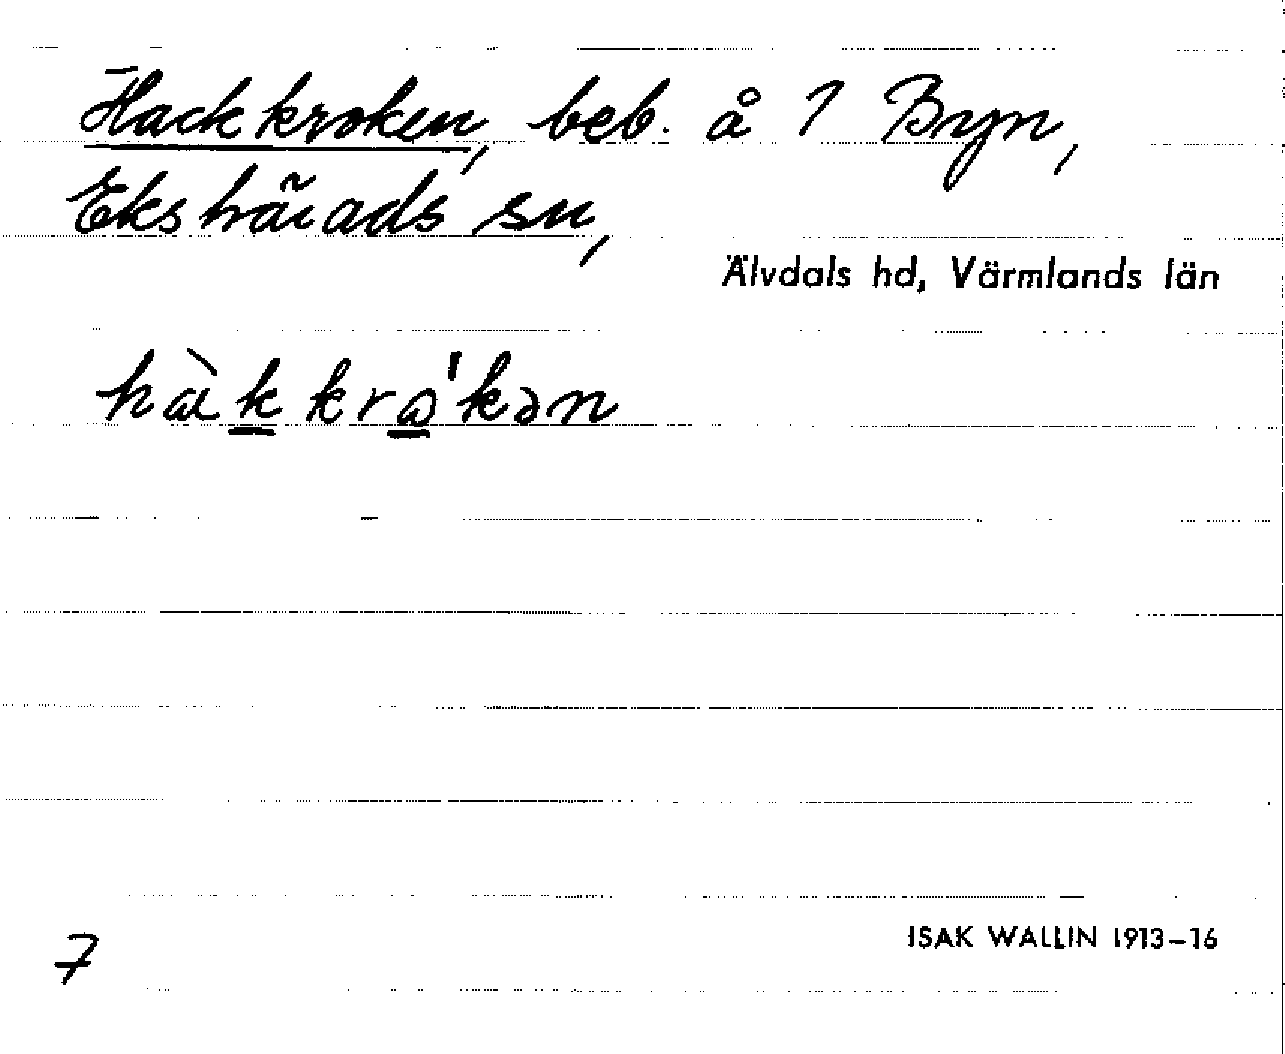 Hackkroken, beb. å 1 Byn,
Ekshärads sn,
Älvdals hd, Värmlands län
hàkkrɷ'kən
ISAK WALLIN 1913–16
7